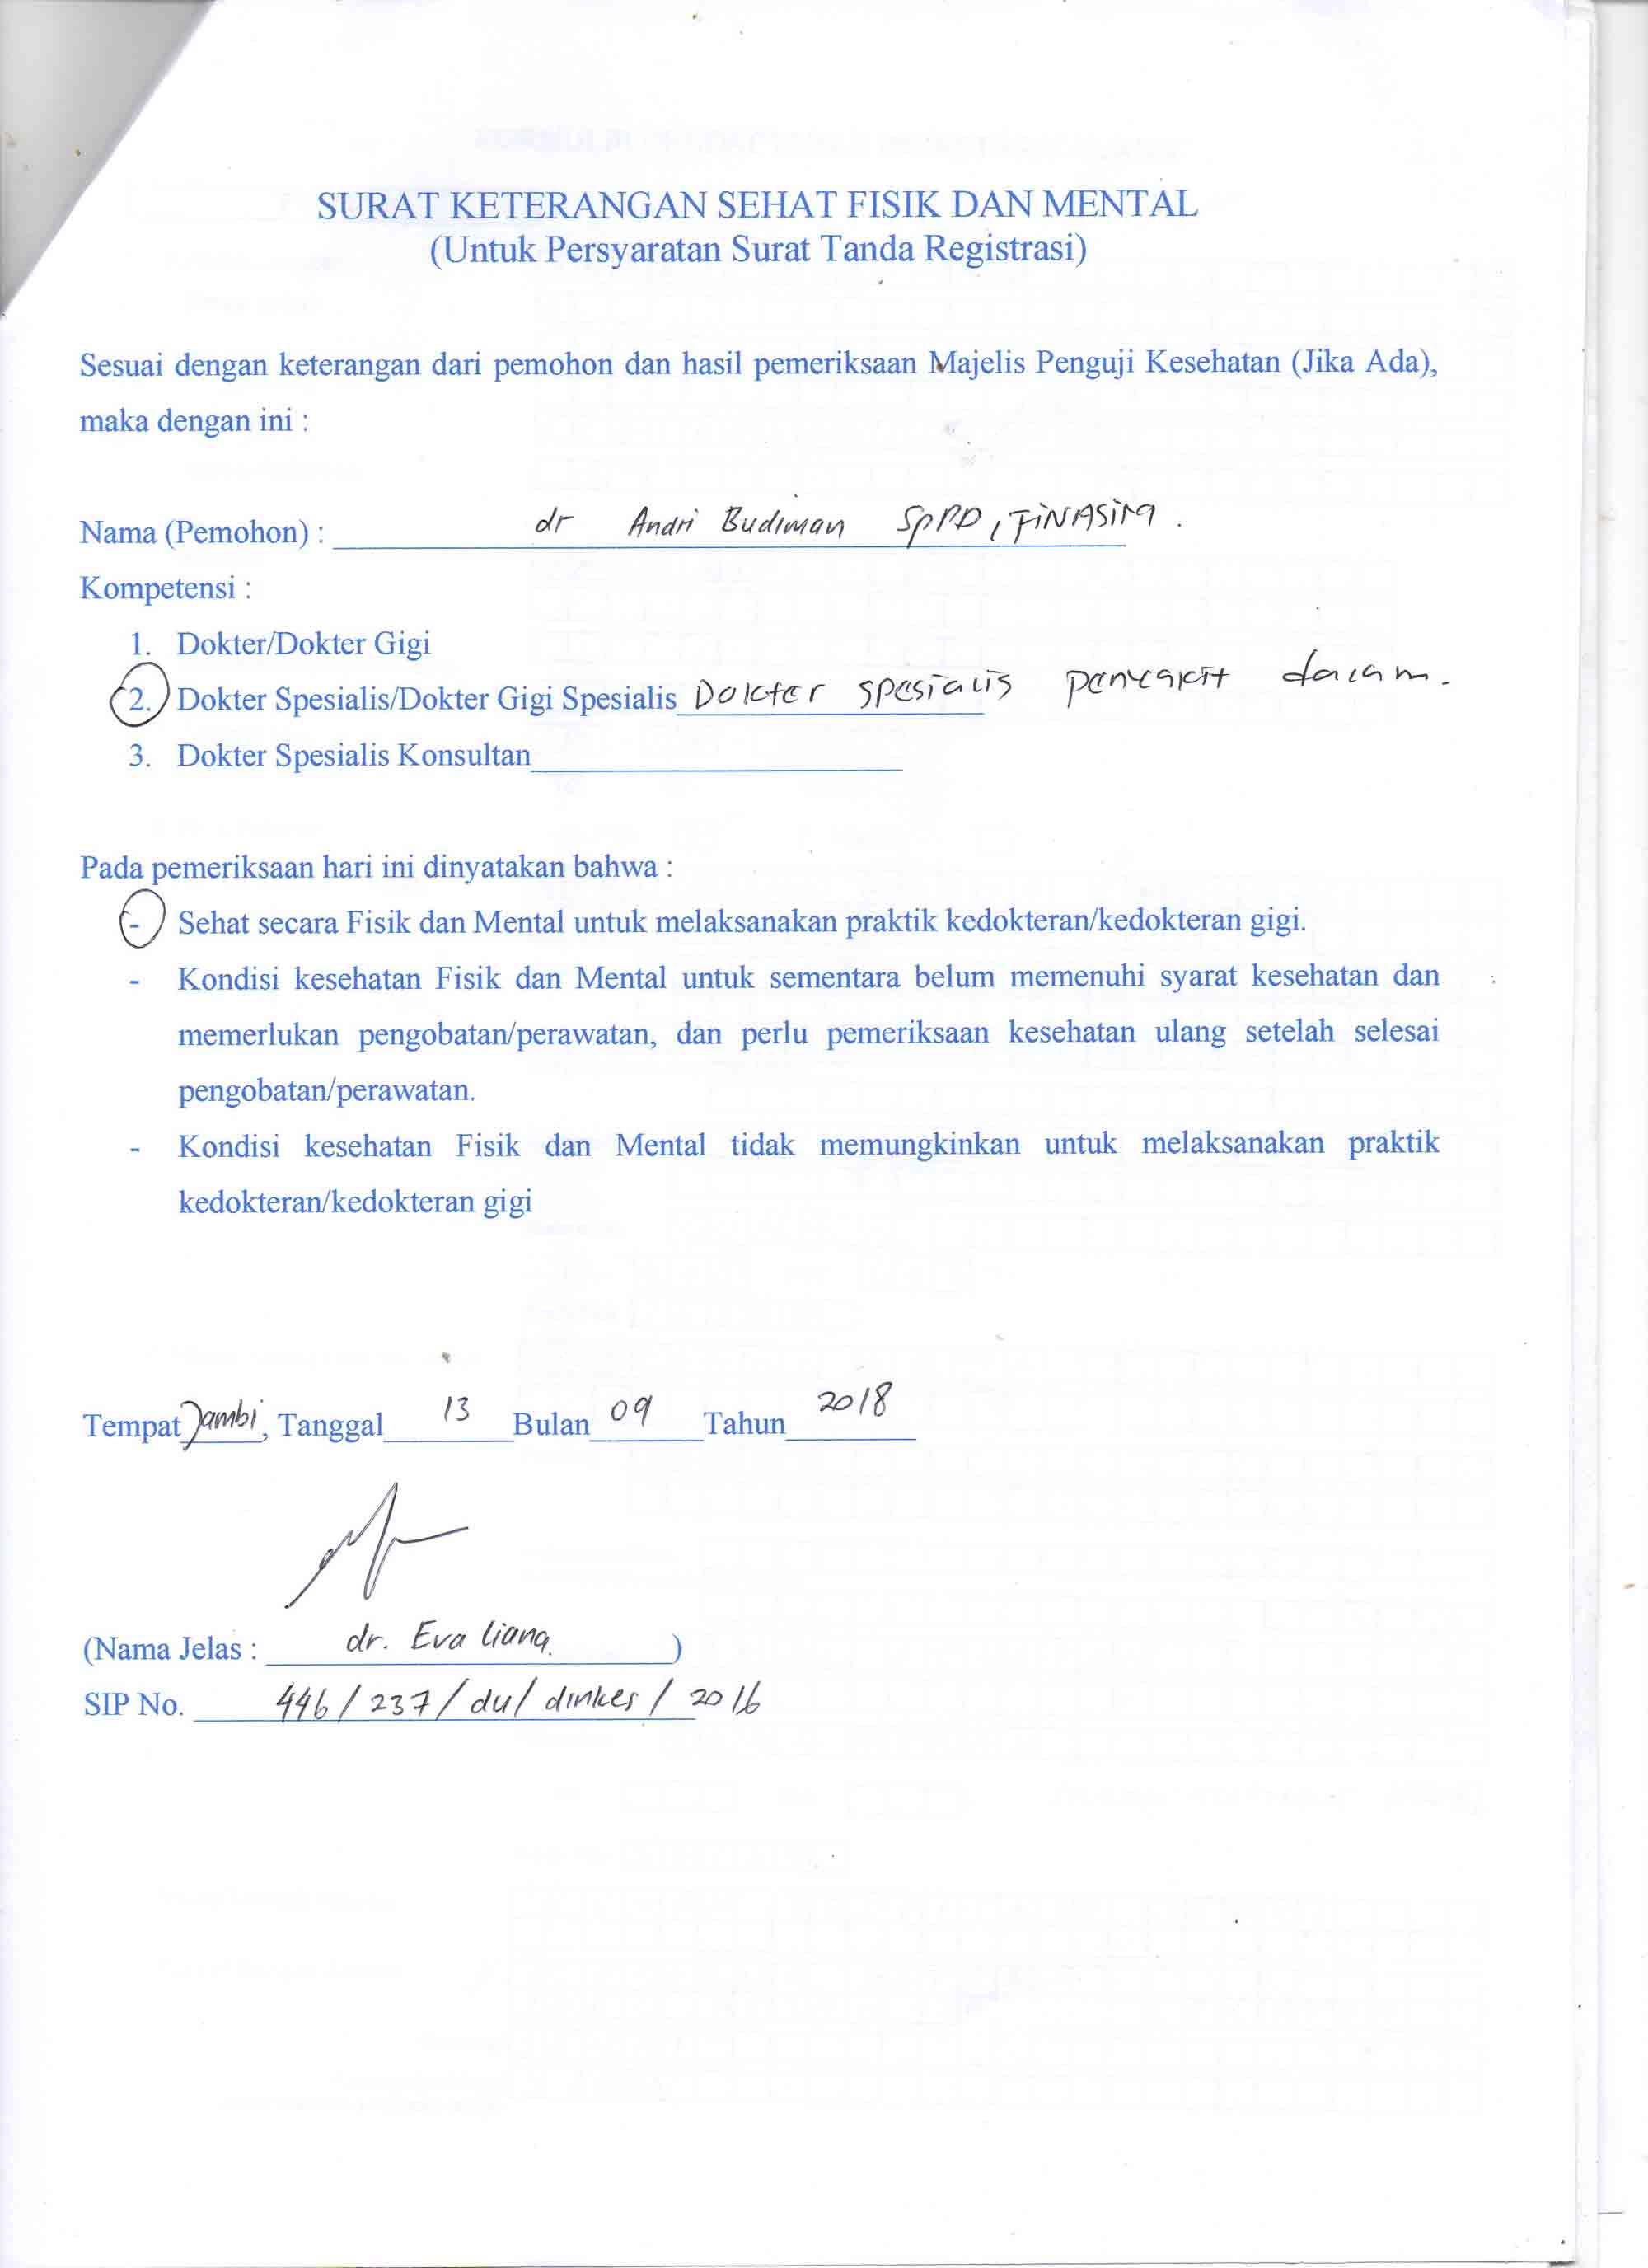 SURAT KETERANGAN SEHAT FISIK DAN MENTAL
(Untuk Persyaratan Surat Tanda Registrasi)
Sesuai dengan keterangan dari pemohon dan hasil pemeriksaan Majelis Penguji Kesehatan (Jika Ada),
maka dengan ini :
Nama (Pemohon) : dr Andri Budiman SpPD, FiNASiM.
Kompetensi :
1. Dokter/Dokter Gigi
2. Dokter Spesialis/Dokter Gigi Spesialis Dokter spesialis penyakit dalam.
3. Dokter Spesialis Konsultan
Pada pemeriksaan hari ini dinyatakan bahwa :
- Sehat secara Fisik dan Mental untuk melaksanakan praktik kedokteran/kedokteran gigi.
- Kondisi kesehatan Fisik dan Mental untuk sementara belum memenuhi syarat kesehatan dan
memerlukan pengobatan/perawatan, dan perlu pemeriksaan kesehatan ulang setelah selesai
pengobatan/perawatan.
- Kondisi kesehatan Fisik dan Mental tidak memungkinkan untuk melaksanakan praktik
kedokteran/kedokteran gigi
Tempat Jambi, Tanggal 13 Bulan 09 Tahun 2018
(Nama Jelas : dr. Eva Liana. )
SIP No. 446 / 237 / du / dinkes / 2016